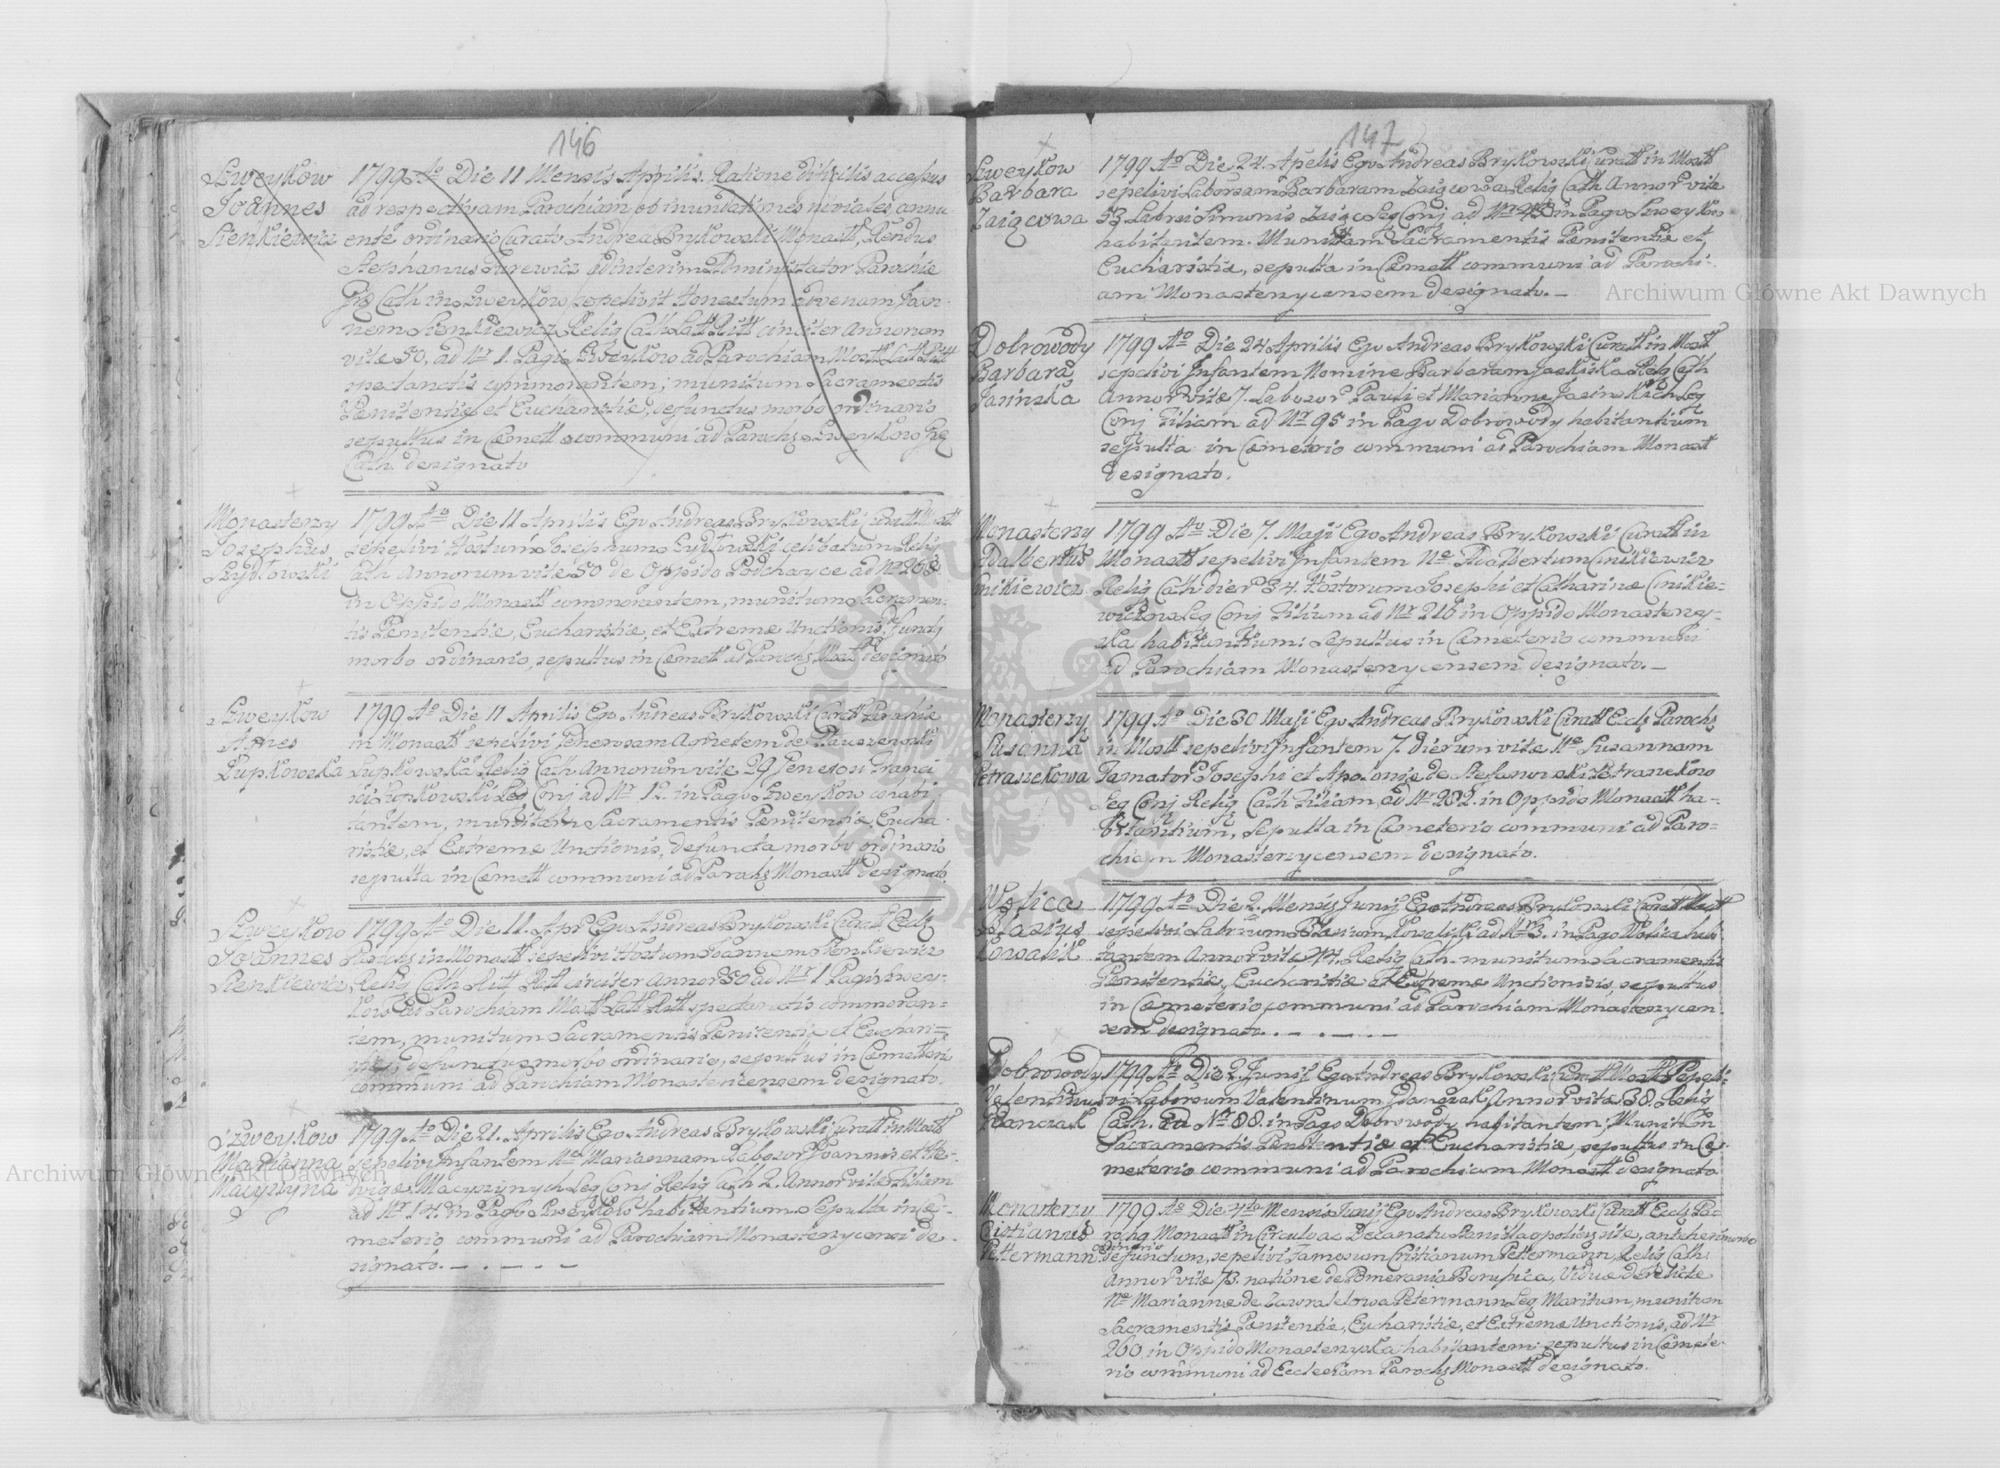 146
Szweykow
Joannes
Sienkiewicz
1799 Ao Die 11 Mensis Aprilis. Ratione difficilis accessus
ad respectivam Parochiam ob inundationes niviales annu-
ente ordinario Curato Andrea Brykowski Monast, Rendus
Stephanus Turewicz ad interim Administrator Parochiæ
Græ Cath in Szweykow sepelivit Honestum advenam Joan-
nem Sienkiewicz Relig Cath Latt Ritt circiter Annorum
vitæ 50, ad Nr 1. Pagi Szweykow ad Parochiam Monst Latt Ritt
spectanctis commorantem; munitum Sacramentis
Pænitentiæ et Eucharistiæ, defunctus morbo ordinario
sepultus in Cæmett communi ad Paroch Szweykow Græ
Cath. designato
Monasterzy
Josephus
Szydłowski
1799 Ao Die 11 Aprilis Ego Andreas Brykowski Curatt Mostt
sepelivi Hostum Josephum Szydłowski celibatum Relig
Cath Annorum vitæ 50 de Oppido Podhayce ad Nr 268
in Oppido Monast commorantem, munitum Sacramen-
tis Pænitentiæ, Eucharistiæ, et Extremæ Unctionis,
morbo ordinario, sepultus in Cæmett ad Paroch Mostt designato
Szweykow
Agnes
Łupkowska
1799 Ao Die 11 Aprilis Ego Andreas Brykowski Curatt Parochiæ
in Monast sepelivi Generosam Agnetem de
Łupkowska Relig Cath Annorum vitæ 29 Generosi Franci
sci Łupkowski Leg Conj ad Nr 12. in Pago Szweykow
tantem, munitam Sacramentis Pænitentiæ, Eucha-
ristiæ, et Extremæ Unctionis, defuncta morbo ordinario
sepulta in Cæmett communi ad Paroch Monast designato
Szweykow
Joannes
Sienkiewicz
1799 Ao Die 11. Apr Ego Andreas Brykowski Curatt Eccle
Paroch in Monast sepelivi Hostum Joannem Sienkiewicz
Relig Cath Ritt Latt circiter Annor 50 ad Nr 1 Pagi Szwey-
kow ad Parochiam Mostt Latt Ritt spectanctis commoran-
tem, munitum Sacramentis Pænitentiæ et Euchari-
stiæ, defunctus morbo ordinario, sepultus in Cæmetterio
communi ad Parochiam Monasteriensem designato.
Szweykow
Marianna
Macyszyna
1799 Ao Die 21. Aprilis Ego Andreas Brykowski Curatt in Mostt
sepelivi Infantem Nne Mariannam Laboror Joannis et He-
dvigæ Macyszynych Leg Conj Relig Cath 2. Annor vitæ Filiam
ad Nr 14. in Pago Szweykow habitantium Sepulta in Cæ-
meterio communi ad Parochiam Monasterzycensi de-
signato. — . — . —
147
Szweykow
Barbara
Zaięcowa
1799 Ao Die 24. Aprilis Ego Andreas Brykowski Curatt in Mostt
sepelivi Laborsam Barbaram Zaięcowa Relig Cath Annor vitæ
53 Laborsi Simonis Zaięc Leg Conj ad Nr 43 in Pago Szweykow
habitantem. Munitam Sacramentis Pænitentiæ et
Eucharistiæ, sepulta in Cæmett communi ad Parochi-
am Monasterzycensem designato. —
Dobrowody
Barbara
Jasinska
1799 Ao Die 24 Aprilis Ego Andreas Brykowski Curatt in Mostt
sepelivi Infantem Nomine Barbaram Jasinska Relig Cath
Annor vitæ 7. Laboror Pauli et Mariannæ Jasinskich Leg
Conj Filiam ad Nr 95 in Pago Dobrowody habitantium
sepulta in Cæmeterio communi ad Parochiam Monast
designato.
Monasterzy
Adalbertus
Cnikiewicz
1799 Ao Die 7. Maji Ego Andreas Brykowski Curatt in
Monast sepelivi Infantem Nne Adalbertum Cnikiewicz
Relig Cath dier 34. Hostorum Josephi et Catharinæ Cnikie-
wiczow Leg Conj Filium ad Nr 216 in Oppido Monasterzy-
ska habitantium: Sepultus in Cæmeterio communi
ad Parochiam Monasterzycensem designato. —
Monasterzy
Susanna
Petranckowa
1799 Ao Die 30 Maji Ego Andreas Brykowski Curatt Eccle Paroch
in Mostt sepelivi Infantem 7. dierum vitæ Nne Susannam
Famator Josephi et Apoloniæ de Stefanowski Petranckow
Leg Conj Relig Cath Filiam ad Nr 202. in Oppido Monast ha-
bitantium, Sepulta in Cæmeterio communi ad Paro-
chiam Monasterzycensem designato.
Wolica
Blasius
Kowalik
1799 Ao Die 2. Mensis Junij Ego Andreas Brykowski Curatt Mostt
sepelivi Labrium Blasium Kowalik ad Nr 3. in Pago Wolica habi-
tantem Annor vitæ 44. Relig Cath. munitum Sacramentis
Pænitentiæ, Eucharitiæ et Extremæ Unctionisis, sepultus
in Cæmeterio communi ad Parochiam Monasterzycen
sem designato. . — . — . —
Dobrowody
Valentinus
1799 Ao Die 2. Junij Ego Andreas Brykowski Curatt Mostt Sepeli-
vi Laborsum Valentinum Annor vitæ 38. Relig
Cath. ad Nr 88. in Pago Dobrowody habitantem; Munitum
Sacramentis Pænitentiæ et Eucharistiæ, sepultus in Cæ-
meterio communi ad Parochiam Monast designato
Monasterzy
Cristianus
Pettermann
1799 Ao Die 4ta Mensis Junij Ego Andreas Brykowski Curatt Eccle Pa-
roch Monast in Circulo ac Decanatu Stanislaopoliensi sitæ, morbo
ordinario
defunctum, sepelivi Famosum Cristianum Pettermann, Relig Cath:
Annor vitæ 73. natione de Pomerania Borusica, Viduæ derelictæ
Nne Mariannæ de Petermann Leg Maritum, munitum
Sacramentis Pænitentiæ, Eucharistiæ, et Extremæ Unctionis, ad Nr
260 in Oppido Monasterzyska habitantem: sepultus in Cæmete-
rio communi ad Ecclesiam Paroch Monast designato.
Archiwum Główne Akt Dawnych
Archiwum Główne Akt Dawnych